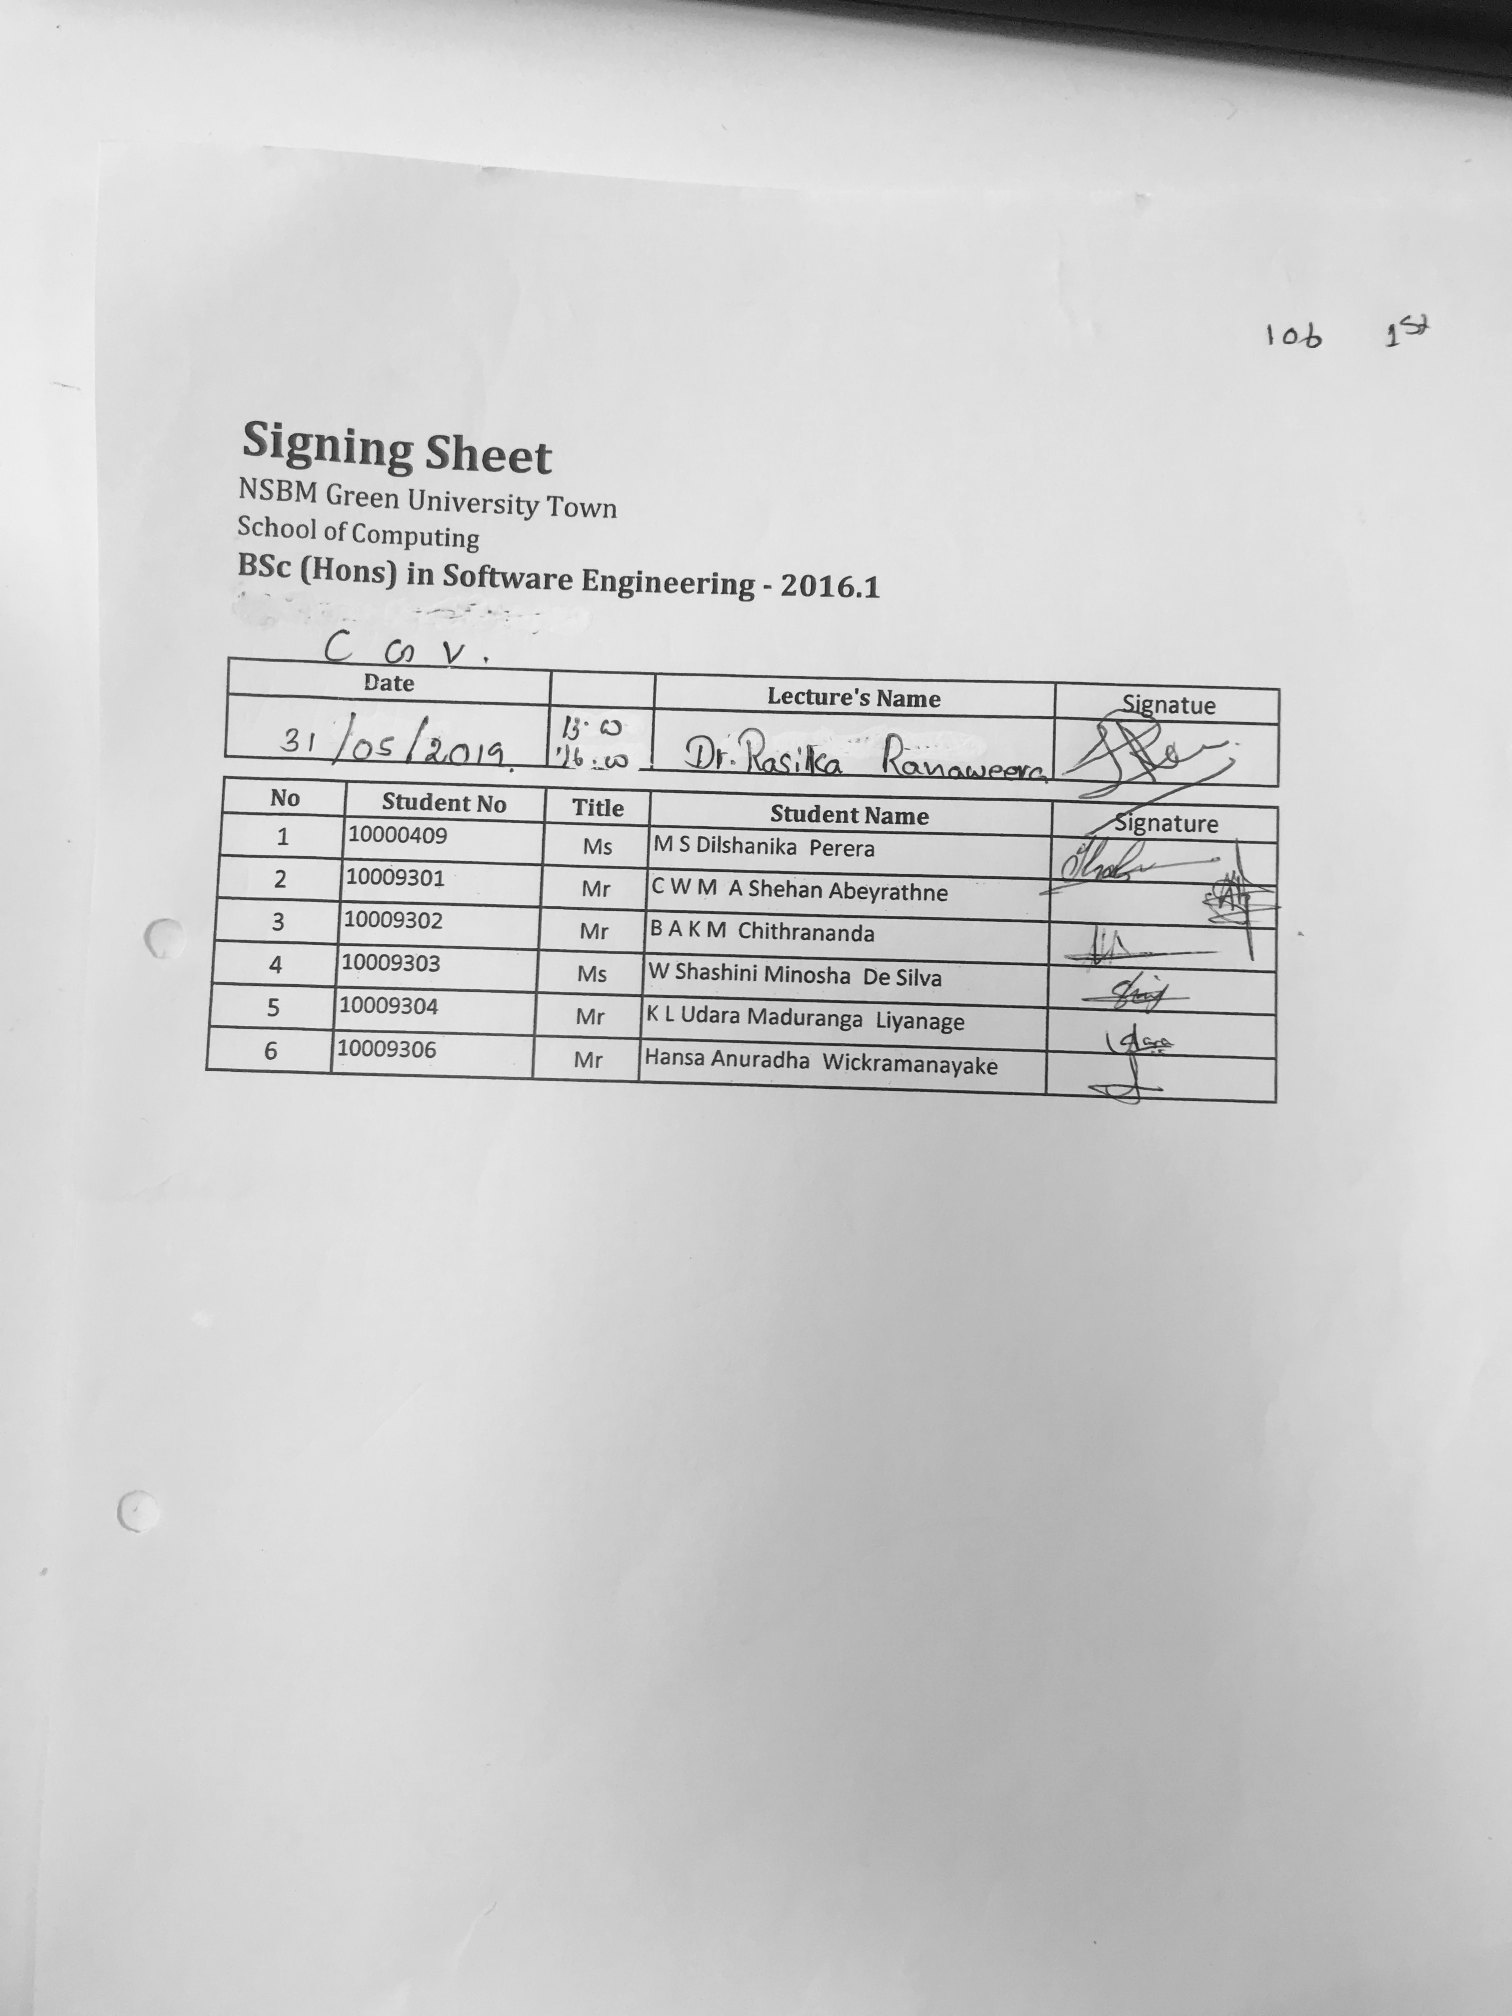 106 1st
Signing Sheet
NSBM Green University Town
School of Computing
BSc (Hons) in Software Engineering - 2016.1
Date Lecture's Name Signatue
31/05/2019. 16.00 Dr. Rasika Ranaweera
No Student No Title Student Name Signature
1 10000409 Ms M S Dilshanika Perera
2 10009301 Mr C W M A Shehan Abeyrathne
3 10009302 Mr B A K M Chithrananda
4 10009303 Ms W Shashini Minosha De Silva
5 10009304 Mr K L Udara Maduranga Liyanage Udara
6 10009306 Mr Hansa Anuradha Wickramanayake